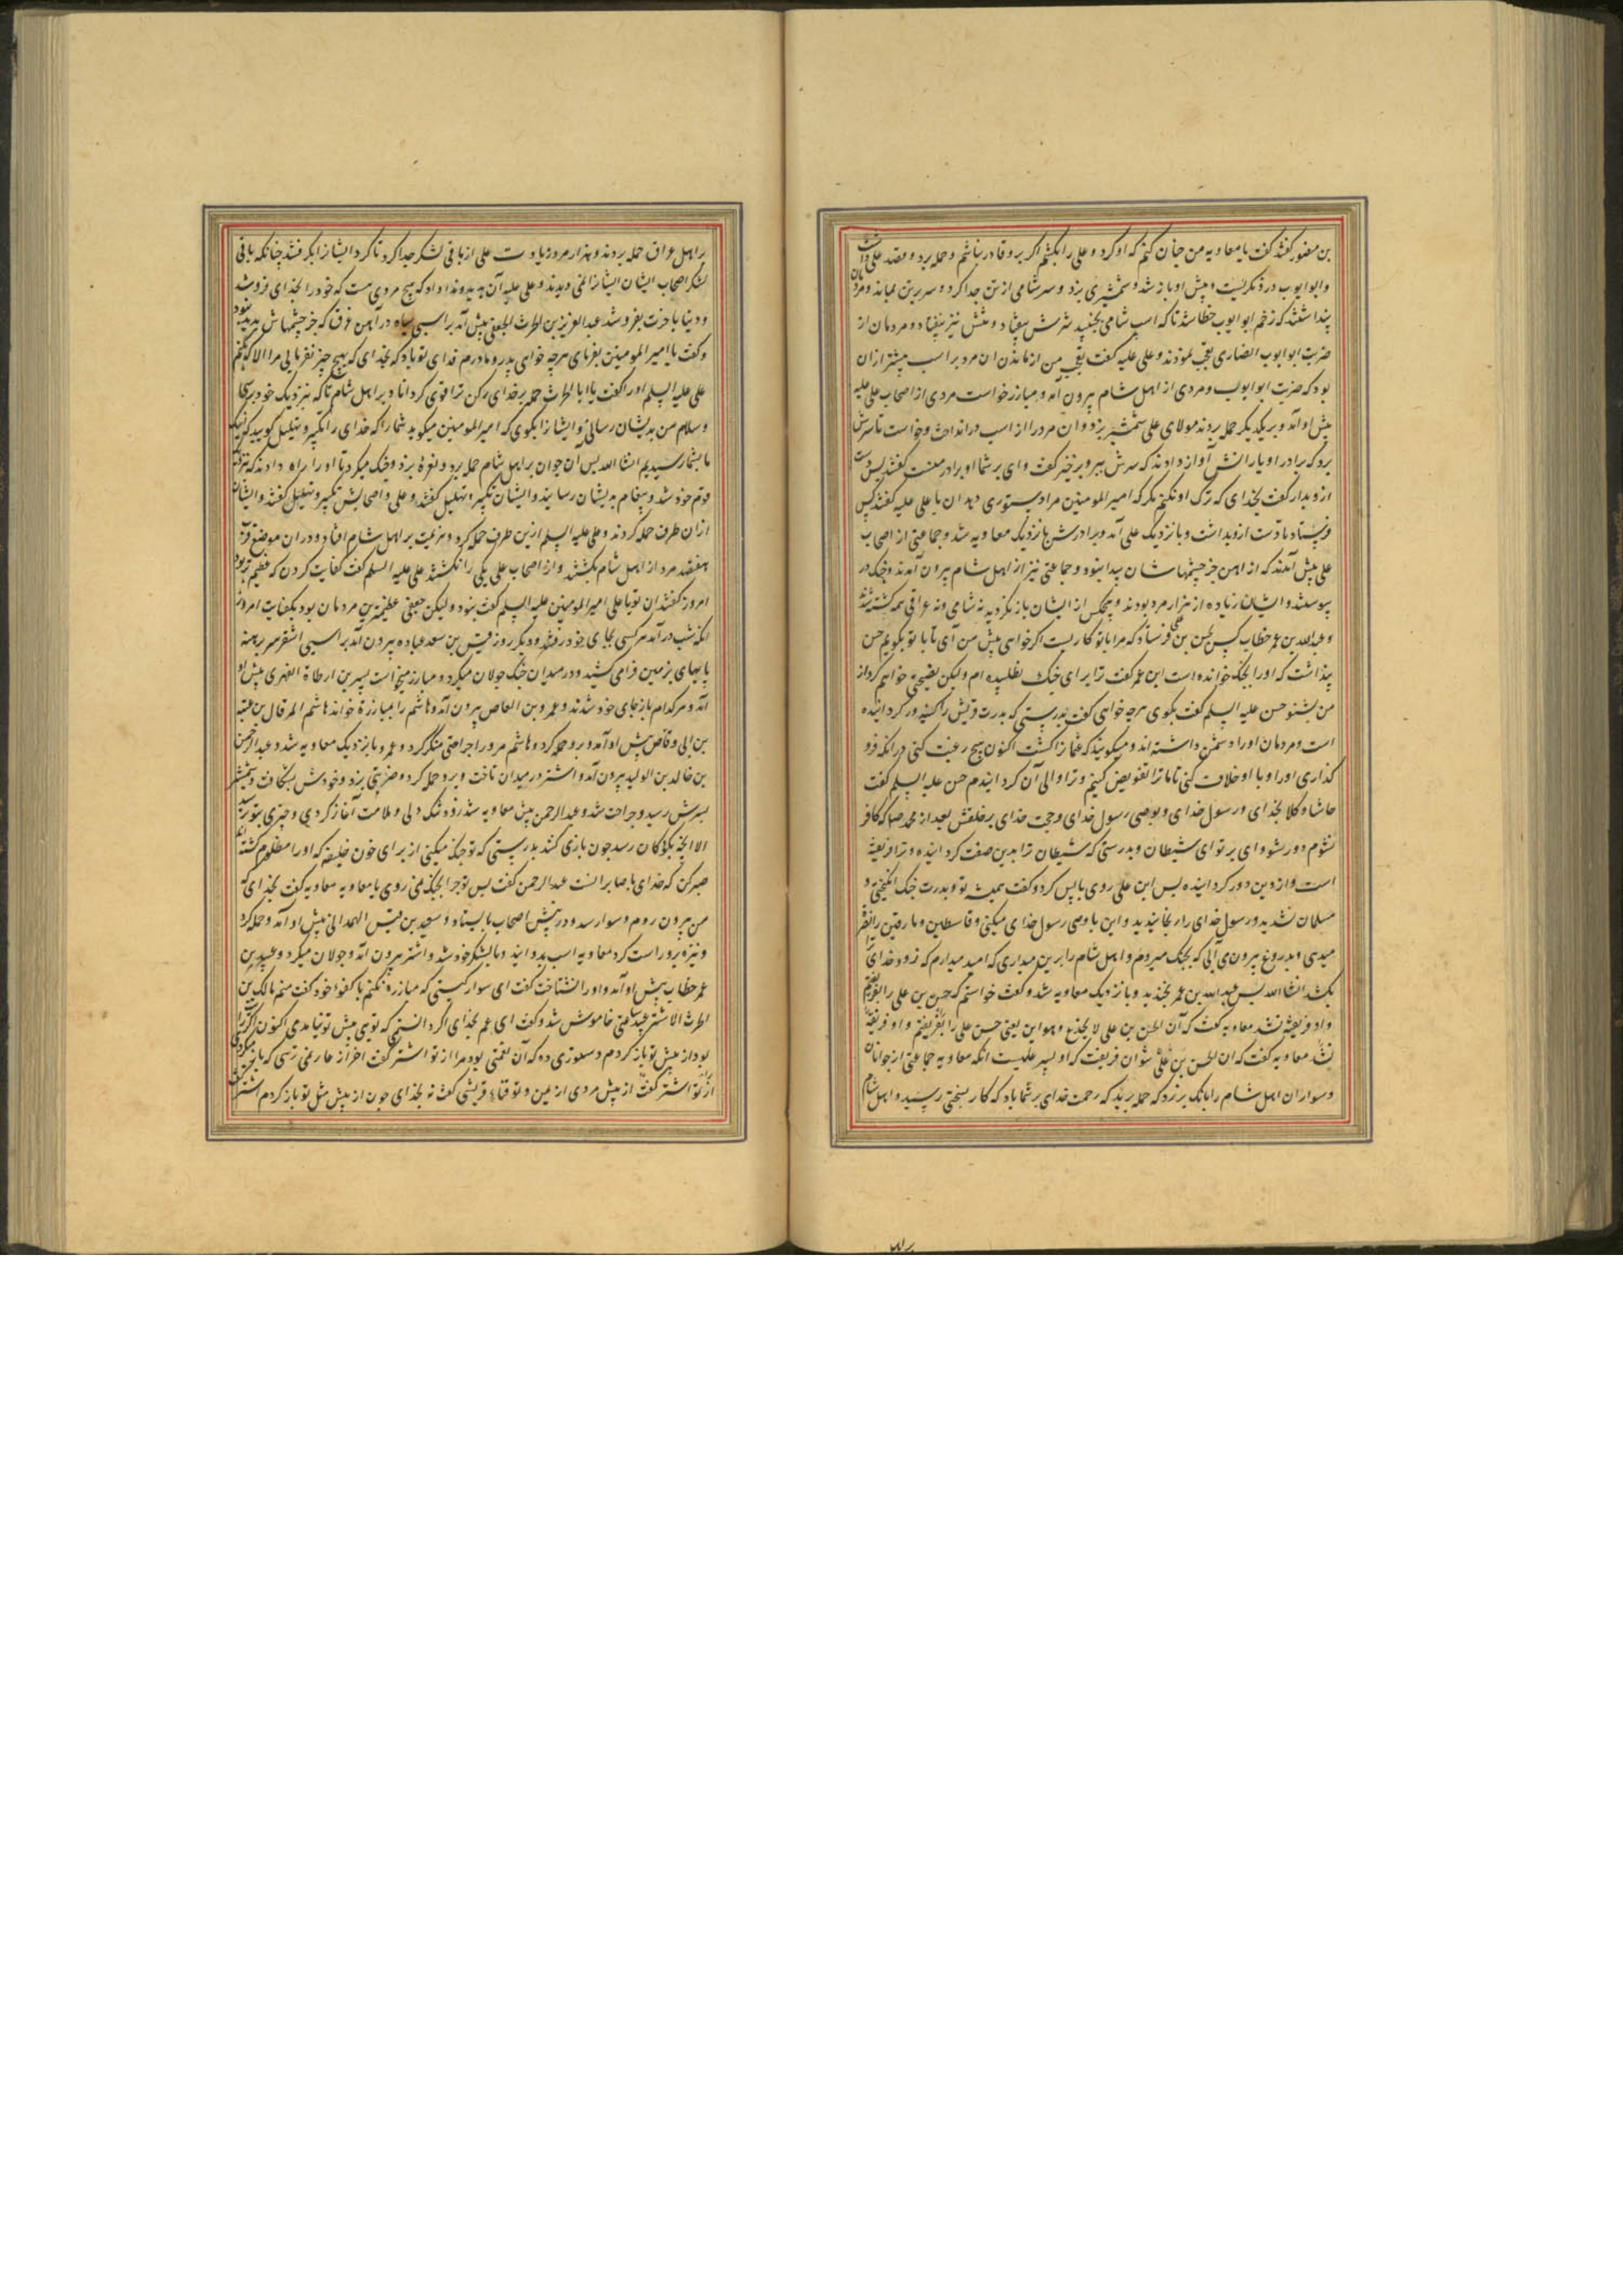 بن منصور کفتند کفت یا معاویه من چنان کنم که او کرد و علی را بکشم اکر برو قادر باشم و حمله برد و بقصد علی
و ابو ایوب درو نکریست و پیش او باز شد و شمشیری بزد و سر شامی از تن جدا کرد و سر بر تن بماند و مردمان
پنداشتند که زخم ابو ایوب خطا شد تا که اسب شامی بجنبید سرش بیفتاد و تنش نیز بیفتاد و مردمان از
ضربت ابو ایوب انصاری تعجب نمودند و علی علیه کفت تعجب من از ماندن آن مرد بر اسب بیشتر از آن
بود که ضربت ابو ایوب و مردی از اهل شام بیرون آمد و مبارز خواست مردی از اصحاب علی علیه
پیش او آمد و بر یکدیکر حمله بردند مولای علی شمشیر بزد و آن مرد را از اسب در انداخت و خواست تا سرش
برد که برادر او یارانش آواز دادند که سرش ببر و برخیز کفت وای بر شما او برادر منست کفتند پس دست
ازو بدار کفت بخدای که ترک او نکنم مکر که امیر المومنین مرا دستوری دهد آن با علی علیه کفتند کس
فرستاد تا دست ازو بداشت و با نزدیک علی آمد و برادرش با نزدیک معاویه شد و جماعتی از اصحاب
علی پیش آمدند که از آهن جز چشمهاشان پیدا نبود و جماعتی نیز از اهل شام بیرون آمدند و جنک در
پیوستند و ایشان زیاده از هزار مرد بودند و هیچکس از ایشان باز نکردید نه شامی و نه عراقی همه کشته شدند
و عبدالله بن عمر خطاب کس بحسن بن علی فرستاد که مرا با تو کاریست اکر خواهی پیش من آی تا با تو بکویم حسن
پنداشت که او را بجنک خوانده است ابن عمر کفت ترا برای جنک نطلبیده ام ولیکن نصیحتی خواهم کرد از
من بشنو حسن علیه السلم کفت بکوی هرچه خواهی کفت بدرستی که پدرت قریش را کینه ور کردانیده
است و مردمان او را دشمن داشته اند و میکویند که عثمان را کشت اکنون هیچ رغبت کنی در آنکه فرو
کذاری او را و با او خلاف کنی تا ما ترا تفویض کنیم و ترا والی آن کردانیدم حسن علیه السلم کفت
حاشا و کلا بخدای و رسول خدای و بوصی رسول خدای و حجت خدای بر خلقش بعد از محمد صلی که کافر
نشوم دور شو وای بر تو ای شیطان و بدرستی که شیطان ترا بدین صفت کردانیده و ترا فریفته
است و از دین دور کردانیده پس ابن علی روی باپس کرد و کفت همیشه تو و پدرت جنک انکیختی و
مسلمان نشدید و رسول خدای را رنجانیدید و این با وصی رسول خدای میکنی و قاسطین و مارقین را نصرت
میدهی و بدروغ بیرون می آیی که بجنک میروم و اهل شام را برین میداری که امید میدارم که زود خدای ترا
بکشد انشا الله پس عبد الله بن عمر بخندید و با نزدیک معاویه شد و کفت خواستم که حسن بن علی را بفریبم
و او فریفته نشد معاویه کفت که آن الحسن بن علی لا یخدع و هو ابن یعنی حسن علی را بفریفتم و او فریفته
نشد معاویه کفت که آن الحسن بن علی نتوان فریفت که او پسر علیست آنکه معاویه جماعتی از جوانان
و سواران اهل شام را بانک برزد که حمله برید که رحمت خدای بر شما باد که کار بسختی رسید و اهل شام
براهل
بر اهل عراق حمله بردند و هزار مرد زیادت علی از باقی لشکر جدا کرد تا کرد ایشانرا بکرفتند چنانکه باقی
لشکر اصحاب ایشان ایشانرا نمی دیدند و علی علیه آن بدید و ندا داد که هیچ مردی هست که خود را بخدای فروشد
و دنیا باخرت بفروشد عبد العزیز بن الحرث الجعفی پیش آمد بر اسبی سیاه در آهن غرق که جز چشمهاش پدید نبود
و کفت یا امیر المومنین بفرمای هرچه خواهی پدر و مادرم فدای تو باد که بخدای که هیچ چیز نفرمایی مرا الا که بکنم
علی علیه السلم او را کفت یا ابا الحرث حمله بر خدای رکن ترا قوی کرداناد بر اهل شام تا که نزدیک خود برسی
و سلام من بدیشان رسانی و ایشانرا بکوی که امیر المومنین میکوید شما را که خدای را تکبیر و تهلیل کویید که اینک
ما بشما رسیدیم انشا الله پس آن جوان بر اهل شام حمله برد و نعره بزد و جنک میکرد تا او را راه دادند که نزد
قوم خود شد و پیغام بدیشان رسانید و ایشان تکبیر و تهلیل کفتند و علی و اصحابش تکبیر و تهلیل کفتند و ایشان
از آن طرف حمله کردند و علی علیه السلم ازین طرف حمله کرد و هزیمت بر اهل شام افتاد و در آن موضع
هفتصد مرد از اهل شام بکشتند و از اصحاب علی یکی را نکشتند علی علیه السلم کفت کفایت کردن که عظیم تر بود
امروز کفتند آن تو یا علی امیر المومنین علیه السلم کفت نبود ولیکن جعفی عظیمترین مردمان بود بکفایت امروز
آنکه شب در آمد هر کسی بجای خود رفتند و دیکر روز قیس بن سعد عباده بیرون آمد بر اسبی اشقر سر برهنه
پایهای بر زمین فرا می کشید و در میدان جنک جولان میکرد و مبارز میخواست بسر بن ارطاة الفهری پیش او
آمد و هر کدام باز جای خود شدند و عمرو بن العاص بیرون آمد و هاشم را بمبارزة خواند هاشم المرقال بن عتبه
بن ابی وقاص پیش او آمد و برو حمله کرد و هاشم مرورا جراحتی منکر کرد و عمرو با نزدیک معاویه شد و عبد الرحمن
بن خالد بن الولید بیرون آمد و اشتر در میدان تاخت و برو حمله کرد و ضربتی بزد و خودش بشکافت و شمشیر
بسرش رسید و جراحت شد و عبد الرحمن پیش معاویه شد زود تنک دلی و ملامت آغاز کردی و چیزی بتو رسید
الا آنچه بکودکان رسد چون بازی کنند بدرستی که تو جنک میکنی از برای خون خلیفه که او را مظلوم کشته
صبر کن که خدای با صابرانست عبد الرحمن کفت پس تو چرا بجنک نمی روی یا معاویه معاویه کفت بخدای که
من بیرون روم و سوار شد و در پیش اصحاب بایستاد و سعید بن قیس الهمدانی پیش او آمد و حمله کرد
و نیزه برو راست کرد معاویه اسب بدوانید و با لشکر خود شد و اشتر بیرون آمد و جولان میکرد و عبید بن
عمر خطاب پیش او آمد و او را نشناخت کفت ای سوار کیستی که مبارزه نکنم با کفو خود کفت منم مالک بن
الحرث الاشتر عبید ساعتی خاموش شد و کفت ای عم بخدای اکر دانستمی که تویی پیش تو نیامدی اکنون اکر ترا
بود از پیش تو باز کردم دستوری ده که آن نعمتی بود مرا از تو اشتر کفت احتراز عار نمی ترسی که باز میکردی
از تو اشتر کفت از پیش مردی از یمن و تو قریشی کفت نه بخدای چون از پیش مثل تو باز کردم اشتر